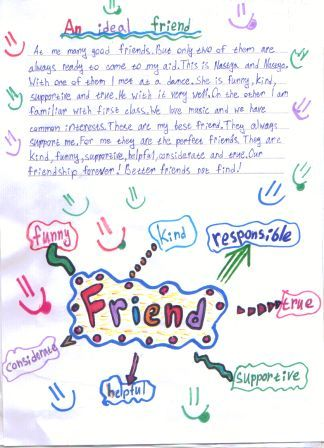 An ideal friend
At me many good friends. But only two of them are
always ready to come to my aid. This is Nastya and Nastya.
With one of them I met at a dance. She is funny, kind,
supportive and true. We with it very well. On the other I am
familiar with first class. We love music and we have
common interests. These are my best friend. They always
support me. For me they are the perfect friends. They are
kind, funny, supportive, helpful, considerate and true. Our
friendship forever! Better friends not find!
funny
kind
responsible
Friend
true
considerate
helpful
supportive